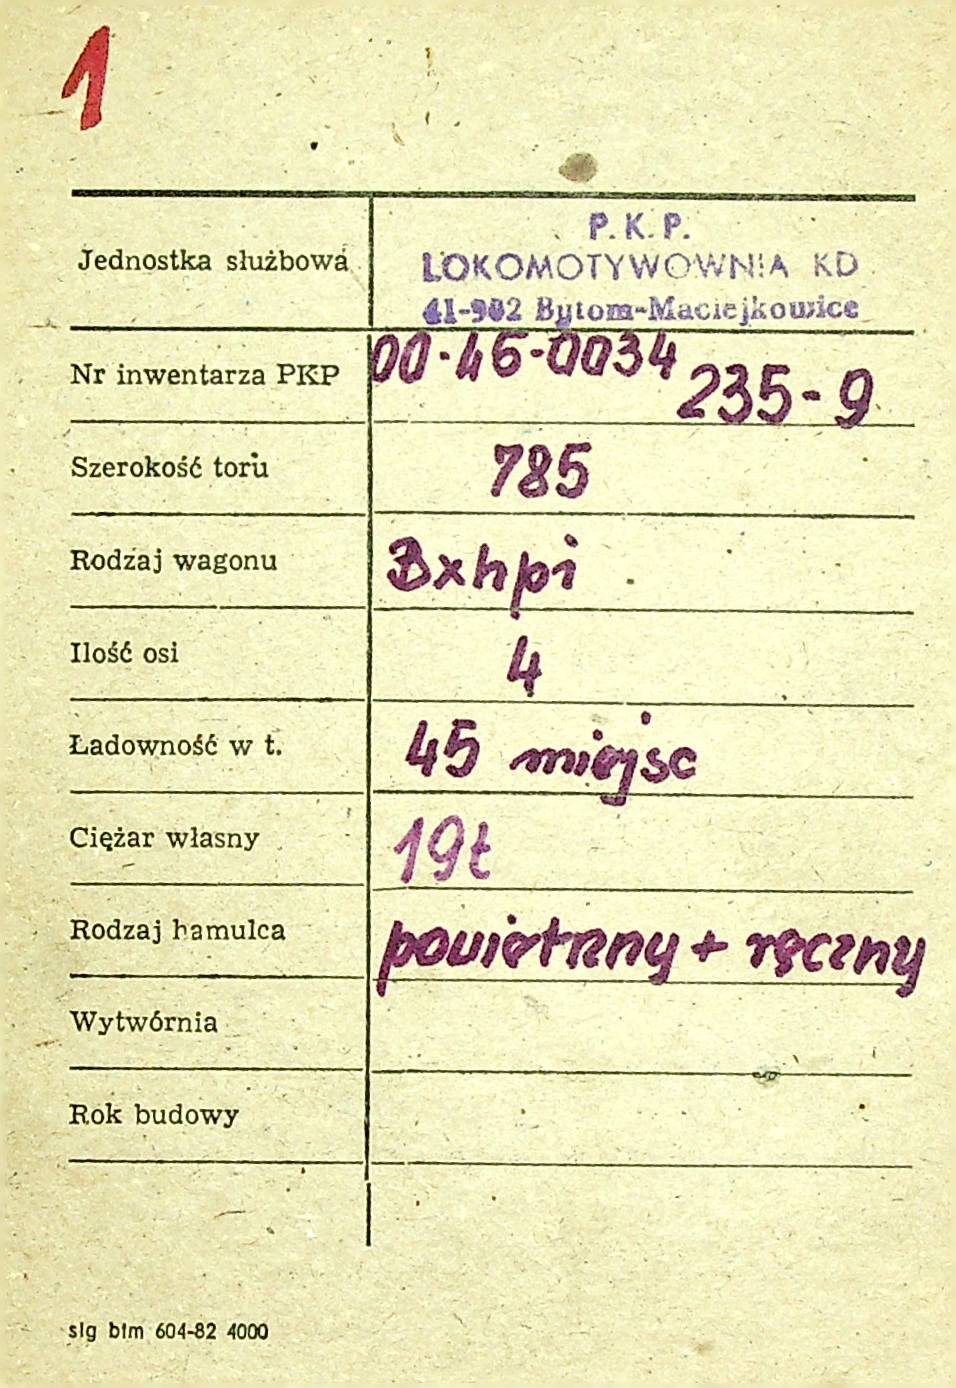 1
Jednostka służbowa
P. K. P.
LOKOMOTYWOWNIA KD
41-902 Bytom-Maciejkowice
Nr inwentarza PKP 00-46-0034 235-9
Szerokość toru 785
Rodzaj wagonu Bxhpi
Ilość osi 4
Ładowność w t. 45 miejsc
Ciężar własny 19t
Rodzaj hamulca powietrzny + ręczny
Wytwórnia
Rok budowy
slg btm 604-82 4000